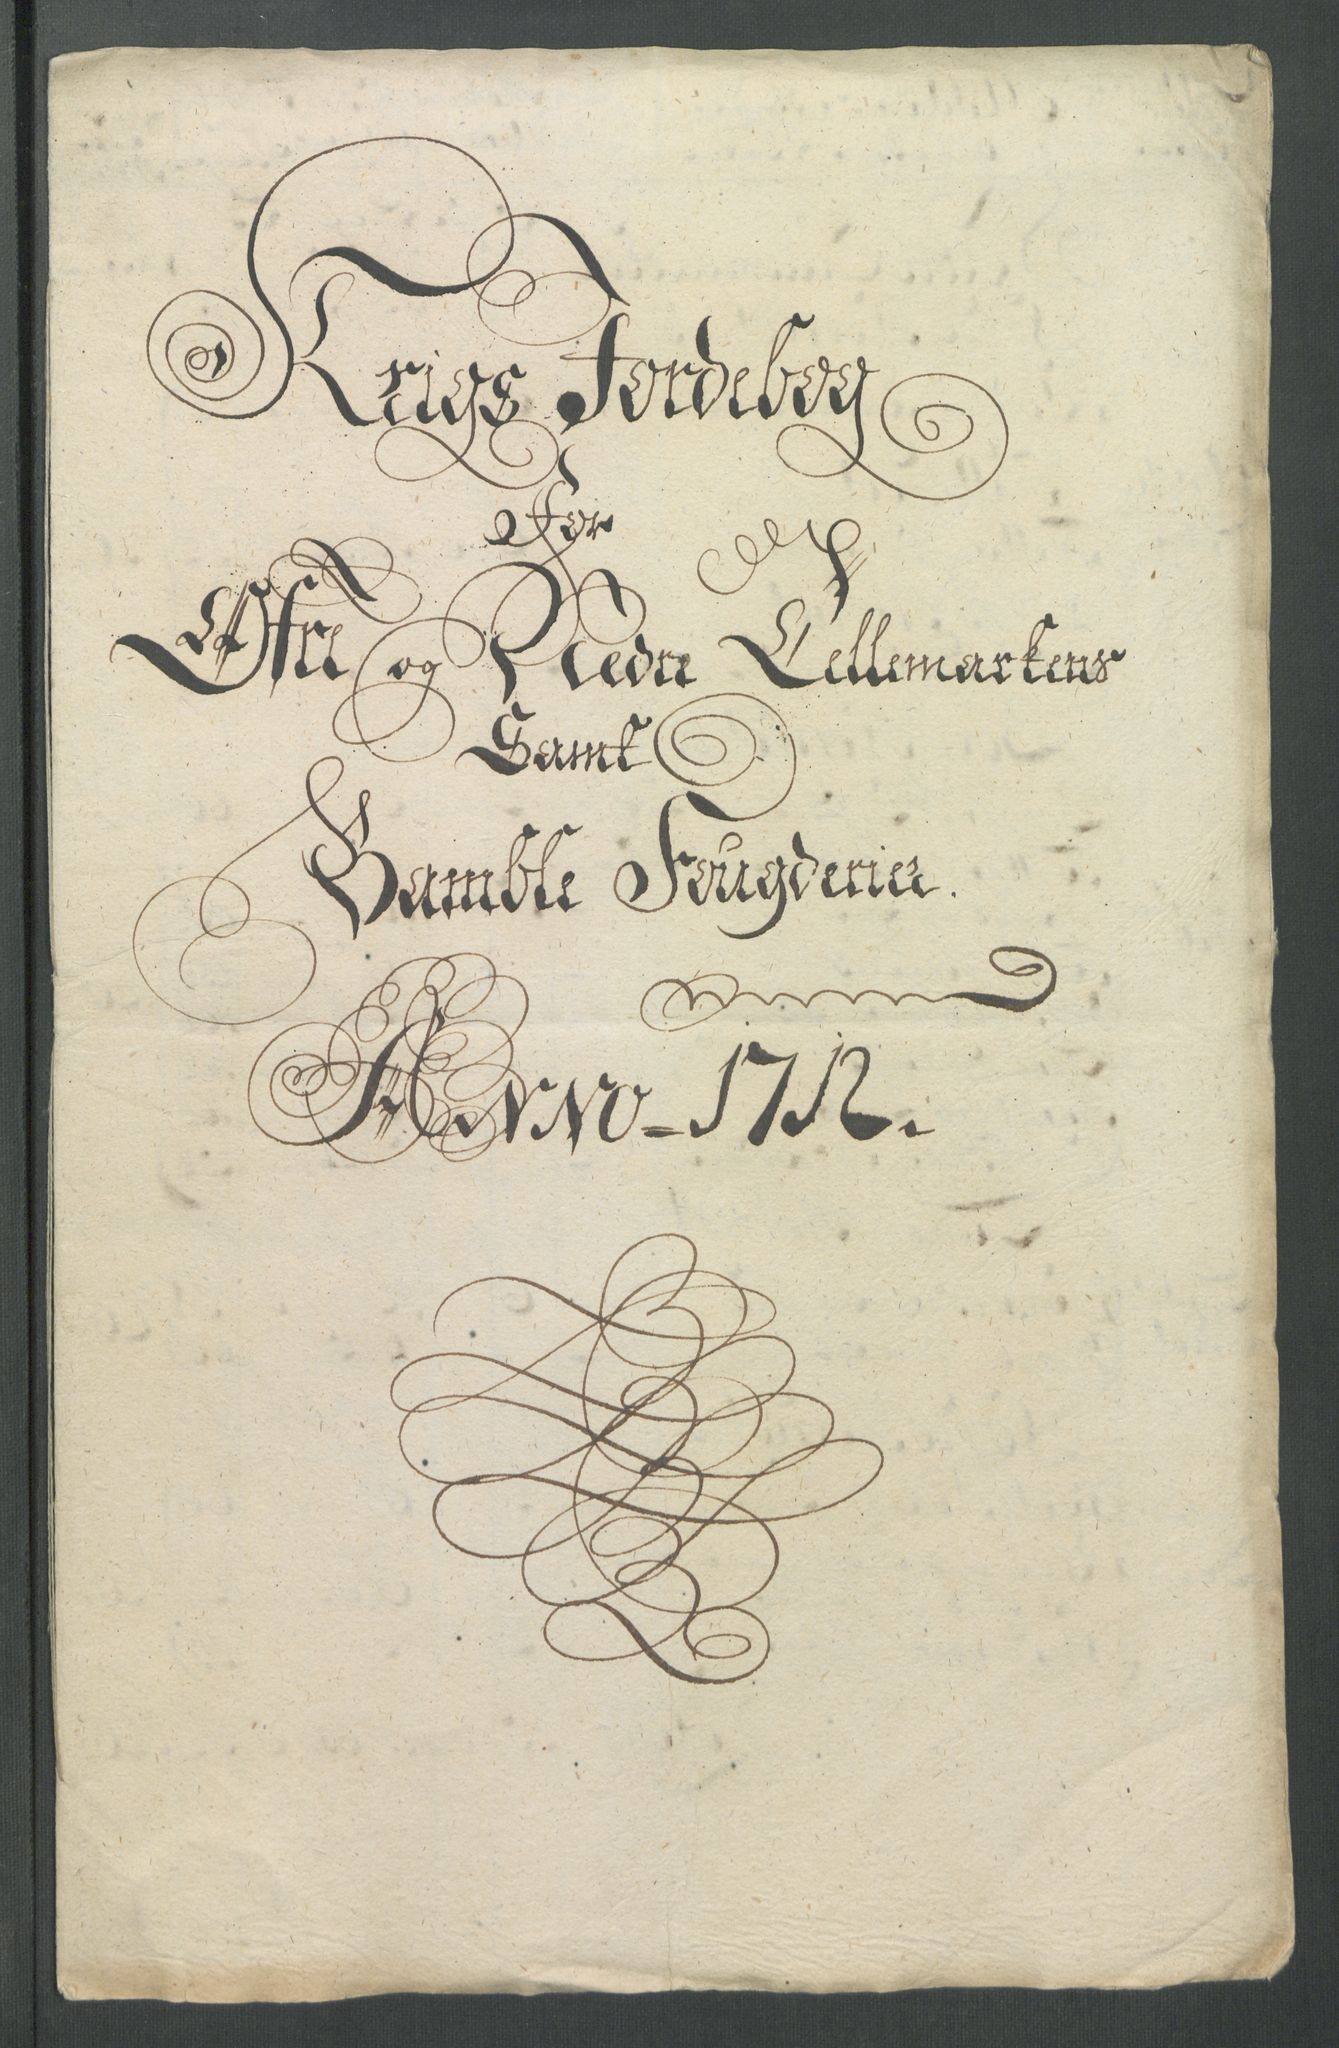 Krigs Jordebog
for
Øfre og Nedre Tellemarkens
Samt
Bamble Fougderier.
Anno - 1712.